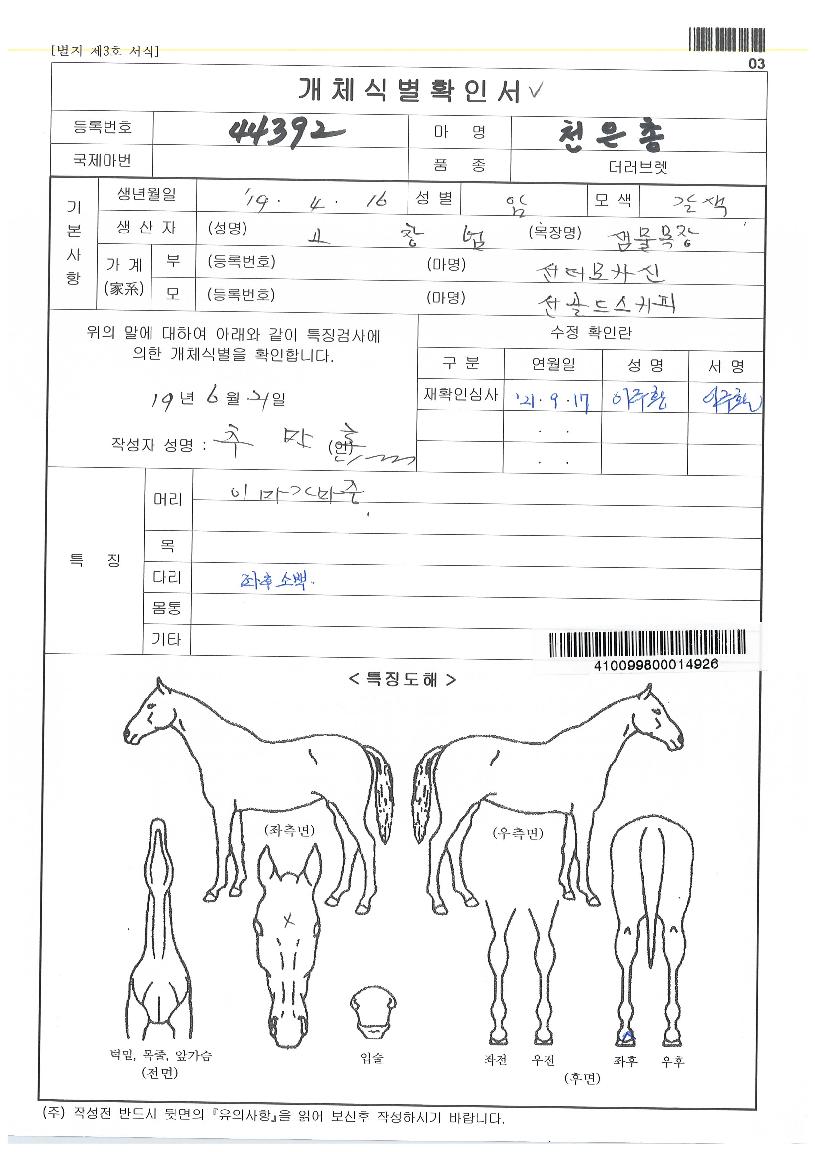 [별지 제3호 서식]
03
개체식별확인서 ✓
등록번호 44392 마 명 천은총
국제마번 품 종 더러브렛
기본사항
생년월일 '19. 4. 16 성별 암 모색 갈색
생산자 (성명) 고창범 (목장명) 샘물목장
가계(家系) 부 (등록번호) (마명) 선더모카신
모 (등록번호) (마명) 선골드스카피
위의 말에 대하여 아래와 같이 특징검사에
의한 개체식별을 확인합니다.
19년 6월 21일
작성자 성명 : (인)
수정 확인란
구 분 연월일 성 명 서 명
재확인심사 '21. 9. 17 이주환 이주환
. .
. .
특 징
머리 이마가마중
목
다리 좌후소백.
몸통
기타
410099800014926
< 특징도해 >
(좌측면) (우측면)
턱밑, 목줄, 앞가슴 입술 좌전 우전 좌후 우후
(전면) (후면)
(주) 작성전 반드시 뒷면의 『유의사항』을 읽어 보신후 작성하시기 바랍니다.